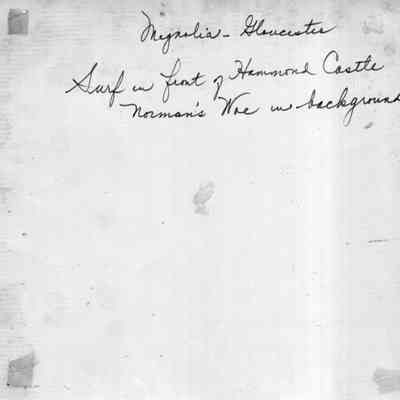 Magnolia - Gloucester
Surf in front of Hammond Castle
Norman's Woe in background